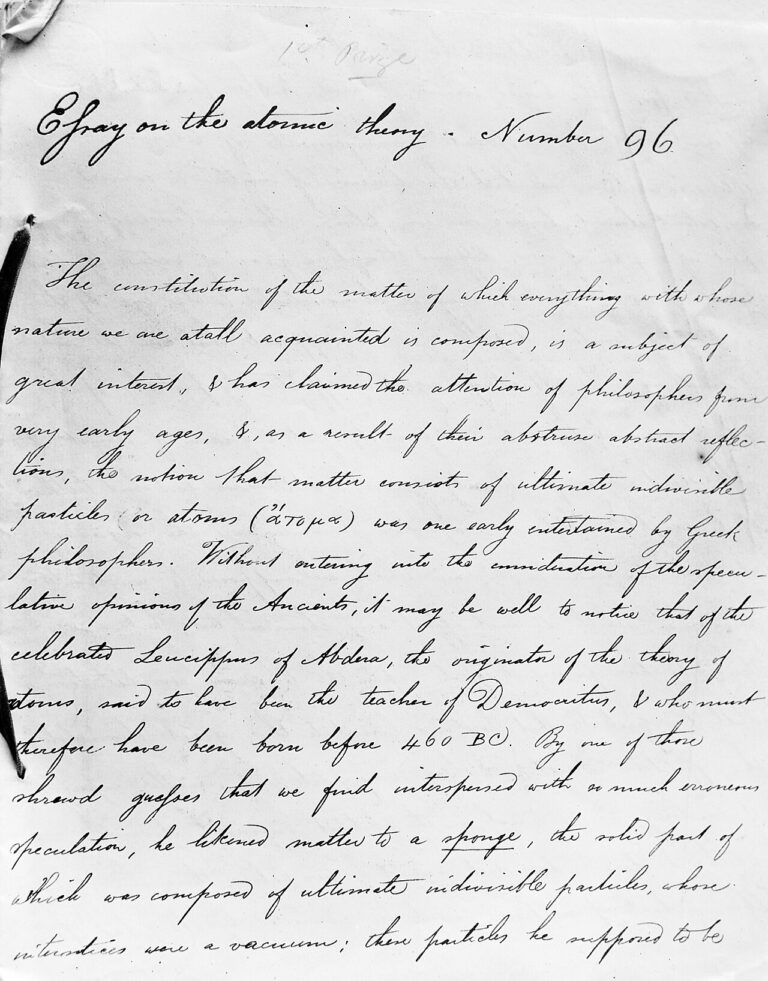 1st Prize
Essay on the atomic theory. Number 96
The constitution of the matter of which everything with whose
nature we are atall acquainted is composed, is a subject of
great interest, & has claimed the attention of philosophers from
very early ages, &, as a result of their abstruse abstract reflec-
tions, the notion that matter consists of ultimate indivisible
particles or atoms (ἄτομα) was one early entertained by Greek
philosophers. Without entering into the consideration of the specu-
lative opinions of the Ancients, it may be well to notice that of the
celebrated Leucippus of Abdera, the originator of the theory of
atoms, said to have been the teacher of Democritus, & who must
therefore have been born before 460 BC. By one of those
shrewd guesses that we find interspersed with so much erroneous
speculation, he likened matter to a sponge, the solid part of
which was composed of ultimate indivisible particles, whose
interstices were a vacuum; these particles he supposed to be